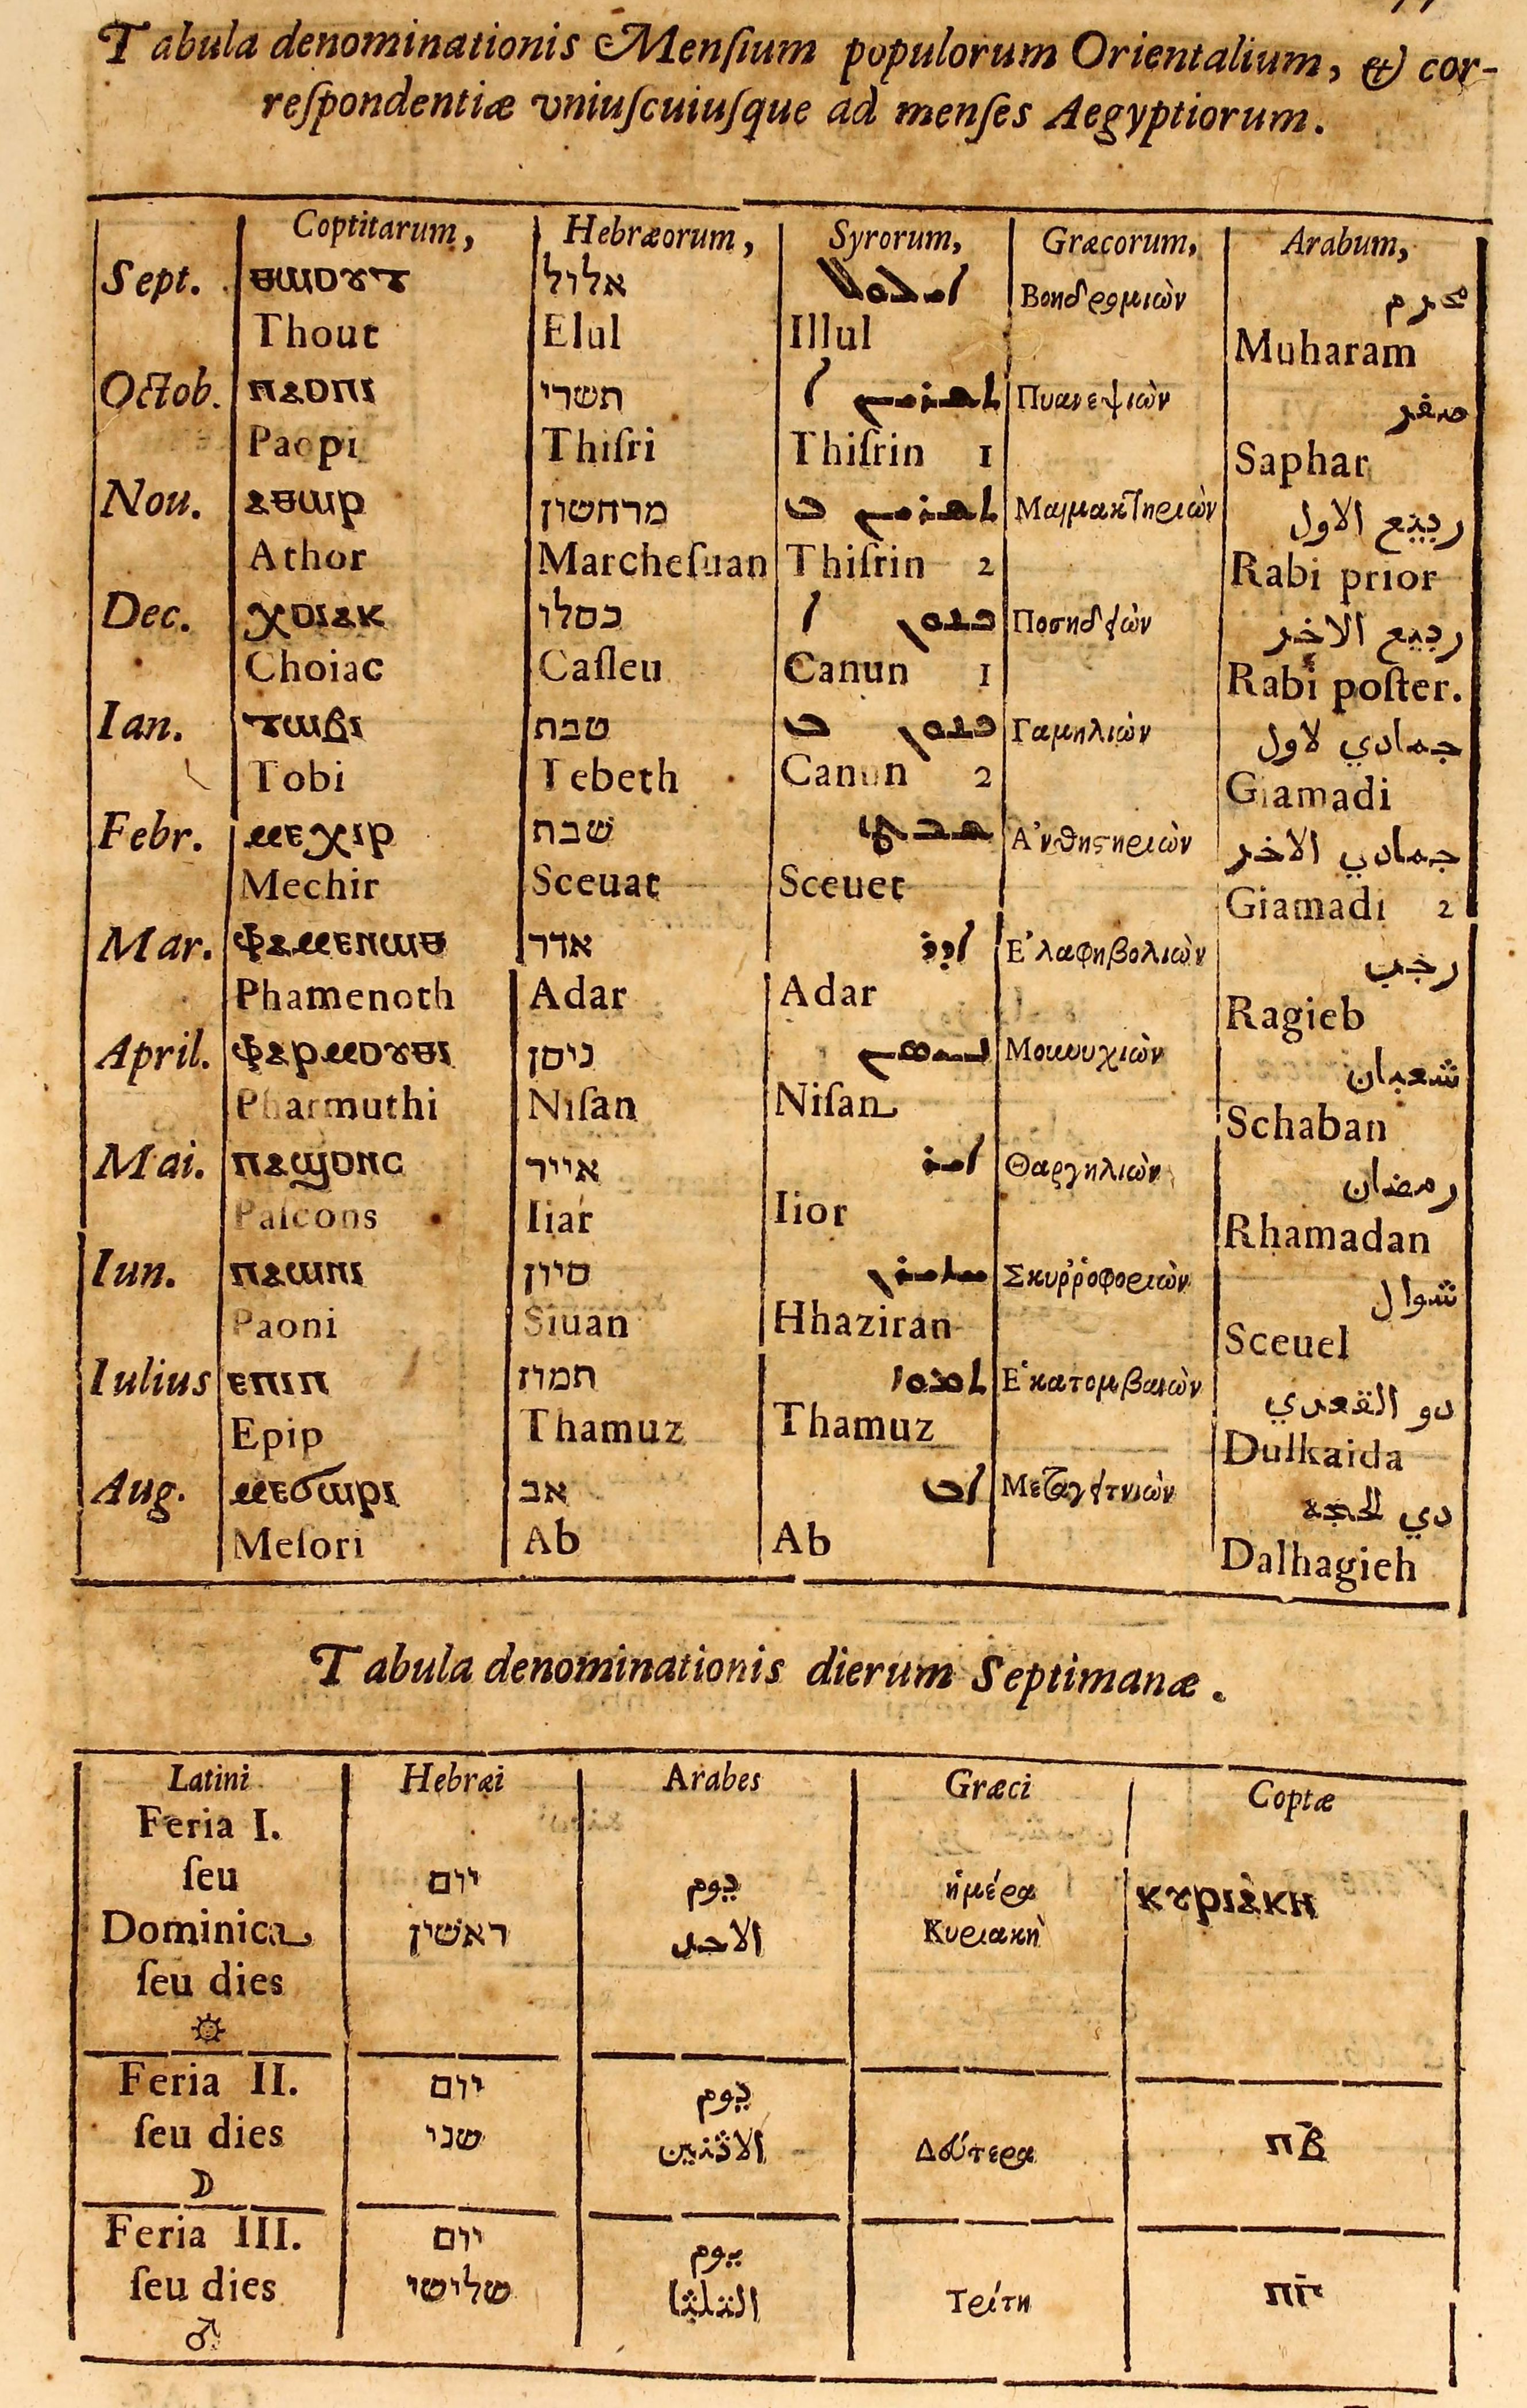 Tabula denominationis Mensium populorum Orientalium, & cor-
respondentiæ vniuscuiusque ad menses Aegyptiorum.
Coptitarum, Hebræorum, Syrorum, Græcorum, Arabum,
Sept. ⲑⲱⲟⲩⲧ אלול ܐܝܠܘܠ Βοηδρομιὼν محرم
Thout Elul Illul Muharam
Octob. ⲡⲁⲟⲡⲓ תשרי ܬܫܪܝܢ ܐ Πυανεψιὼν صفر
Paopi Thiſri Thiſrin 1 Saphar
Nou. ⲁⲑⲱⲣ מרחשון ܬܫܪܝܢ ܒ Μαιμακτηριὼν ربيع الاول
Athor Marcheſuan Thiſrin 2 Rabi prior
Dec. ⲭⲟⲓⲁⲕ כסלו ܟܢܘܢ ܐ Ποσηδειὼν ربيع الاخر
Choiac Caſleu Canun 1 Rabi poſter.
Ian. ⲧⲱⲃⲓ טבת ܟܢܘܢ ܒ Γαμηλιὼν جمادي لاول
Tobi Tebeth Canun 2 Giamadi
Febr. ⲙⲉⲭⲓⲣ שבת ܫܒܛ Ἀνθηςηριὼν جمادي الاخر
Mechir Sceuat Sceuet Giamadi 2
Mar. ⲫⲁⲙⲉⲛⲱⲑ אדר ܐܕܪ Ἐλαφηβολιὼν رجب
Phamenoth Adar Adar Ragieb
April. ⲫⲁⲣⲙⲟⲩⲑⲓ ניסן ܢܝܣܢ Μουνυχιὼν شعبان
Pharmuthi Niſan Niſan Schaban
Mai. ⲡⲁϣⲟⲛⲥ אייר ܐܝܪ Θαργηλιὼν رمضان
Paſcons Iiar Iior Rhamadan
Iun. ⲡⲁⲱⲛⲓ סיון ܚܙܝܪܢ Σκυῤῥοφοριὼν شوال
Paoni Siuan Hhaziran Sceuel
Iulius ⲉⲡⲓⲡ תמוז ܬܡܘܙ Ἑκατομβαιὼν دو القعدي
Epip Thamuz Thamuz Dulkaida
Aug. ⲙⲉⲥⲱⲣⲓ אב ܐܒ Μεταγειτνιὼν دي الحجة
Meſori Ab Ab Dalhagieh
Tabula denominationis dierum Septimanæ.
Latini Hebræi Arabes Græci Coptæ
Feria I.
ſeu יום يوم ἡμέρα ⲕⲩⲣⲓⲁⲕⲏ
Dominica ראשין الاحد Κυριακὴ
ſeu dies
☉
Feria II. יום يوم
ſeu dies שני الاثنين Δευτέρα ⲡⲃ̅
☽
Feria III. יום يوم
ſeu dies שלישי الثلثا Τρίτη
♂